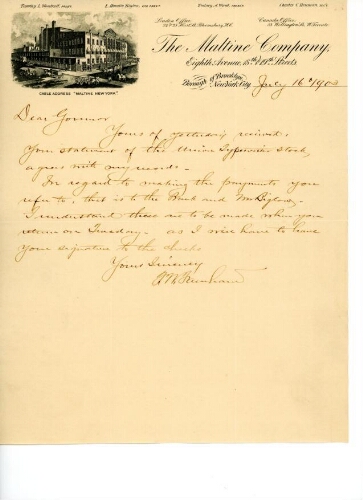 London Office
Canada Office
The Maltine Company,
Eighth Avenue, 18th & 19th Streets
Borough of Brooklyn
New York City
CABLE ADDRESS "MALTINE, NEW YORK"
July 16th 1902
Dear Govenor
Yours of yesterday received.
Your statement of the Union Typewriter Stock,
agrees with my records.
In regard to making the payments you
refer to, that is to the Bank and Mr Biglow,
I understand these are to be made when you
return on Tuesday. as I will have to have
your signature to the checks
Yours Sincerely